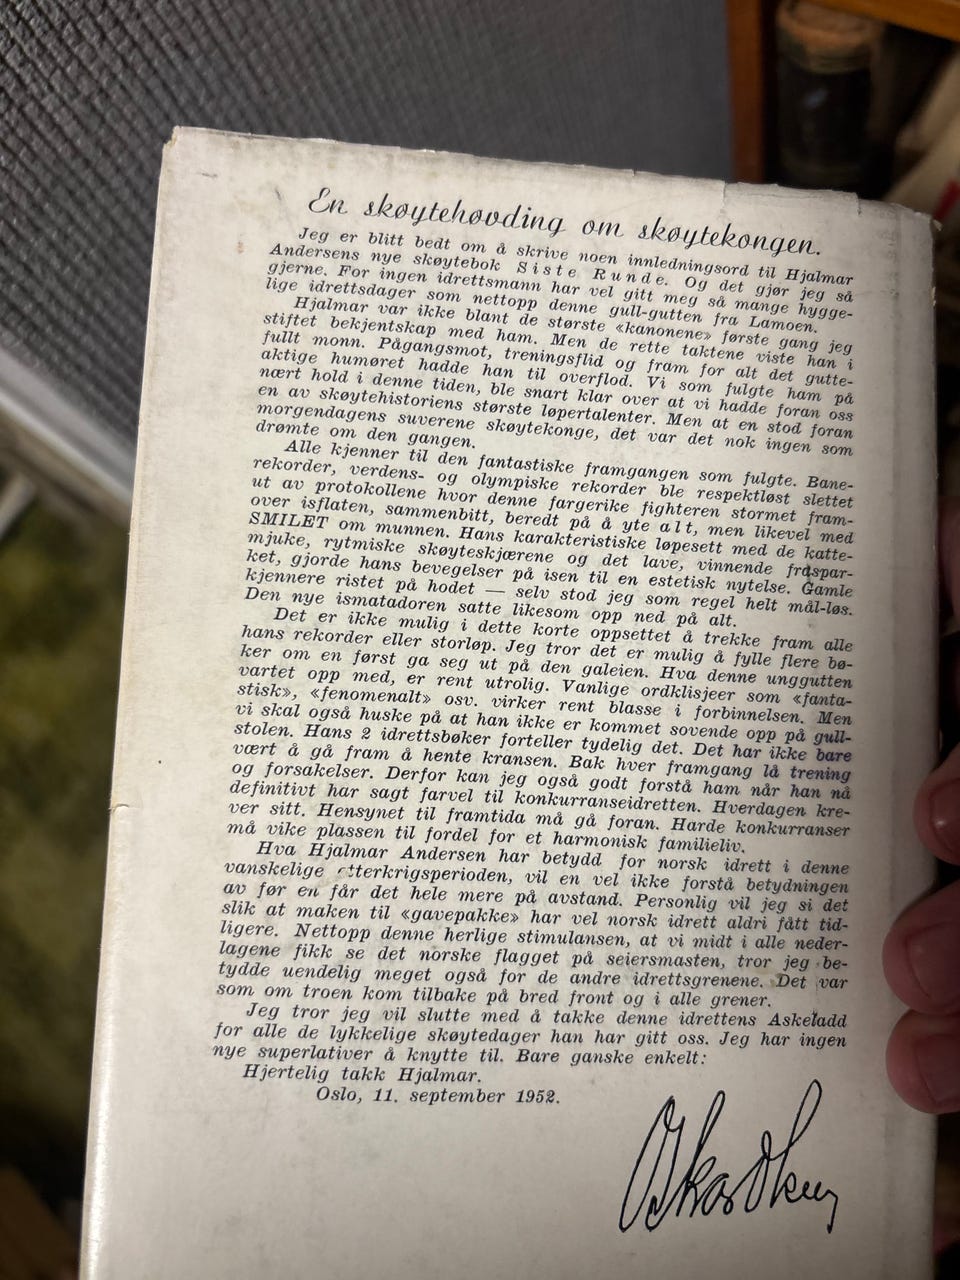 En skøytehøvding om skøytekongen.
Jeg er blitt bedt om å skrive noen innledningsord til Hjalmar
Andersens nye skøytebok Siste Runde. Og det gjør jeg så
gjerne. For ingen idrettsmann har vel gitt meg så mange hygge-
lige idrettsdager som nettopp denne gull-gutten fra Lamoen.
Hjalmar var ikke blant de største «kanonene» første gang jeg
stiftet bekjentskap med ham. Men de rette taktene viste han i
fullt monn. Pågangsmot, treningsflid og fram for alt det gutte-
aktige humøret hadde han til overflod. Vi som fulgte ham på
nært hold i denne tiden, ble snart klar over at vi hadde foran oss
en av skøytehistoriens største løpertalenter. Men at en stod foran
morgendagens suverene skøytekonge, det var det nok ingen som
drømte om den gangen.
Alle kjenner til den fantastiske framgangen som fulgte. Bane-
rekorder, verdens- og olympiske rekorder ble respektløst slettet
ut av protokollene hvor denne fargerike fighteren stormet fram-
over isflaten, sammenbitt, beredt på å yte alt, men likevel med
SMILET om munnen. Hans karakteristiske løpesett med de katte-
mjuke, rytmiske skøyteskjærene og det lave, vinnende fraspar-
ket, gjorde hans bevegelser på isen til en estetisk nytelse. Gamle
kjennere ristet på hodet — selv stod jeg som regel helt mål-løs.
Den nye ismatadoren satte likesom opp ned på alt.
Det er ikke mulig i dette korte oppsettet å trekke fram alle
hans rekorder eller storløp. Jeg tror det er mulig å fylle flere bø-
ker om en først ga seg ut på den galeien. Hva denne unggutten
vartet opp med, er rent utrolig. Vanlige ordklisjeer som «fanta-
stisk», «fenomenalt» osv. virker rent blasse i forbinnelsen. Men
vi skal også huske på at han ikke er kommet sovende opp på gull-
stolen. Hans 2 idrettsbøker forteller tydelig det. Det har ikke bare
vært å gå fram å hente kransen. Bak hver framgang lå trening
og forsakelser. Derfor kan jeg også godt forstå ham når han nå
definitivt har sagt farvel til konkurranseidretten. Hverdagen kre-
ver sitt. Hensynet til framtida må gå foran. Harde konkurranser
må vike plassen til fordel for et harmonisk familieliv.
Hva Hjalmar Andersen har betydd for norsk idrett i denne
vanskelige etterkrigsperioden, vil en vel ikke forstå betydningen
av før en får det hele mere på avstand. Personlig vil jeg si det
slik at maken til «gavepakke» har vel norsk idrett aldri fått tid-
ligere. Nettopp denne herlige stimulansen, at vi midt i alle neder-
lagene fikk se det norske flagget på seiersmasten, tror jeg be-
tydde uendelig meget også for de andre idrettsgrenene. Det var
som om troen kom tilbake på bred front og i alle grener.
Jeg tror jeg vil slutte med å takke denne idrettens Askeladd
for alle de lykkelige skøytedager han har gitt oss. Jeg har ingen
nye superlativer å knytte til. Bare ganske enkelt:
Hjertelig takk Hjalmar.
Oslo, 11. september 1952.
Oskar Olsen